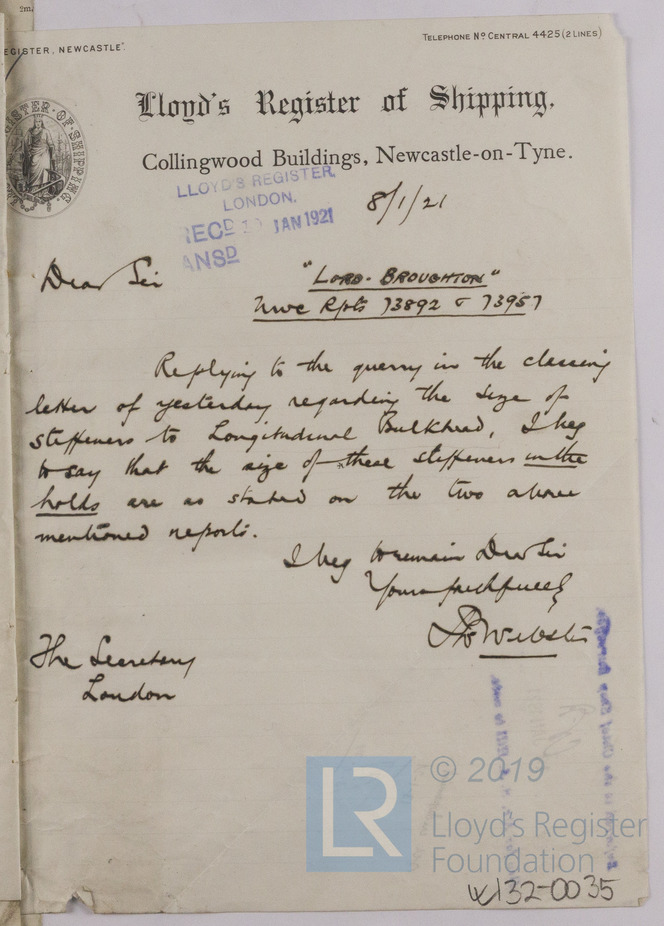 2m.
EGISTER, NEWCASTLE".
TELEPHONE Nº CENTRAL 4425 (2 LINES)
Lloyd's Register of Shipping.
Collingwood Buildings, Newcastle-on-Tyne.
LLOYD'S REGISTER
LONDON.
RECD JAN 1921
ANSD
8/1/21
Dear Sir
"LORD BROUGHTON"
Nwc Rpts 73892 & 73957
Replying to the querry in the classing
letter of yesterday regarding the size of
stiffeners to Longitudinal Bulkhead, I beg
to say that the size of these stiffeners in the
holds are as stated on the two above
mentioned reports.
I beg to remain Dear Sir
Yours faithfully
Webster
The Secretary
London
LR
© 2019
Lloyd's Register
Foundation
W132-0035